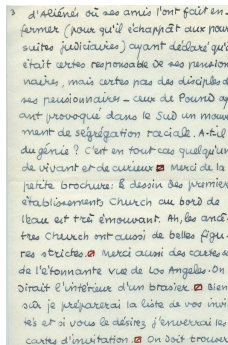 3 d'Aliénés où ses amis l'ont fait en-
fermer (pour qu'il échappât aux pour
suites judiciaires) ayant déclaré qu'il
était certes responsable de ses pension
naires, mais certes pas des disciples de
ses pensionnaires – ceux de Pound ay
ant provoqué dans le Sud un mouve
ment de ségrégation raciale. A-t-il
du génie ? C'est en tout cas quelqu'un
de vivant et de curieux Merci de la
petite brochure: le dessin des premiers
établissements Church au bord de
l'eau est très émouvant. Ah, les ancê-
tres Church ont aussi de belles figu-
res strictes. Merci aussi des cartes et
de l'étonnante vue de Los Angeles. On
dirait l'intérieur d'un brasier. Bien
sûr je préparerai la liste de vos invi
tés et si vous le désirez j'enverrai les
cartes d'invitation. On doit trouver